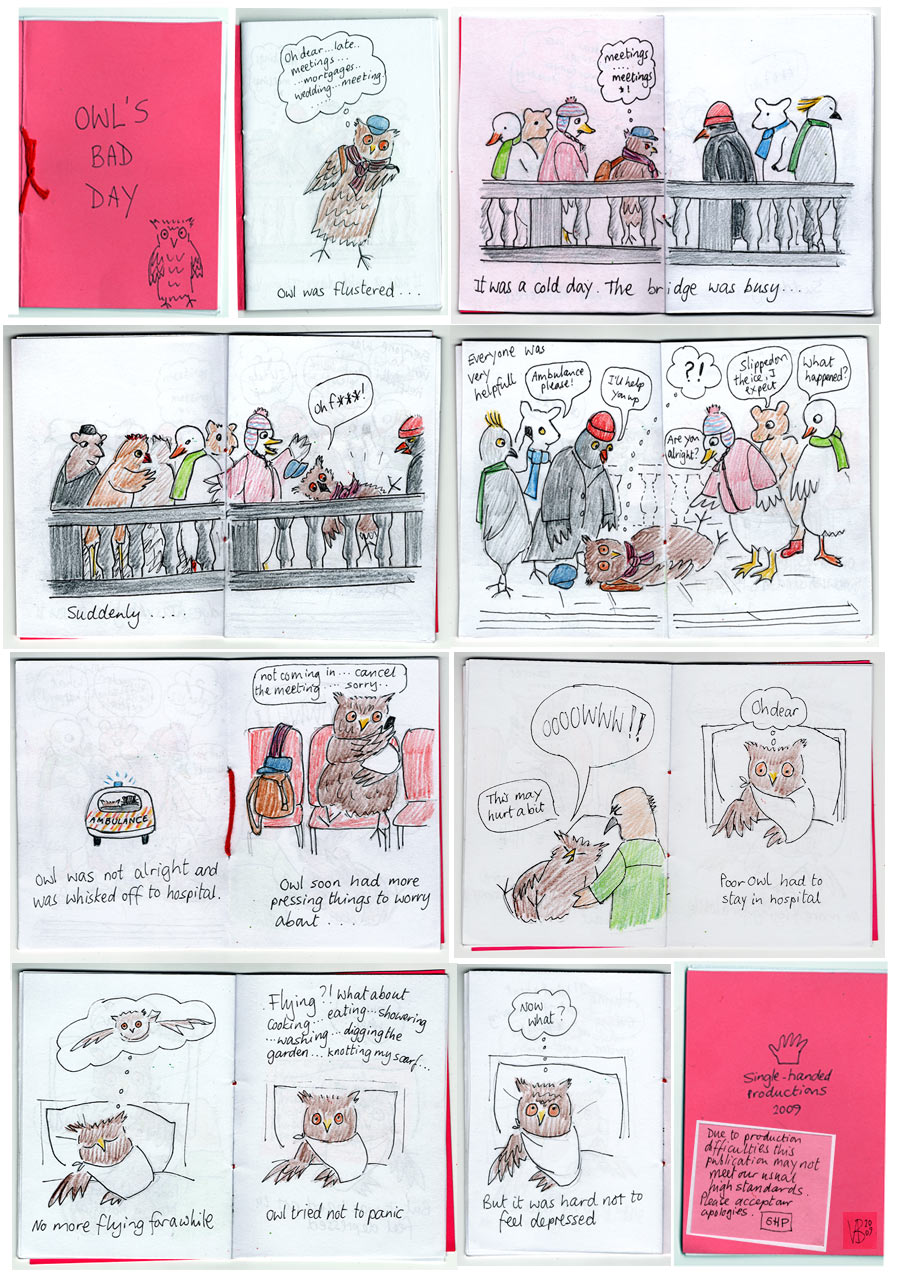 OWL'S
BAD
DAY
Oh dear...late..
meetings....
...mortgages..
wedding...meeting.
.....
Owl was flustered...
meetings
....
meetings
*!
It was a cold day. The bridge was busy...
Oh f***!
Suddenly....
Everyone was
very
helpfull
Ambulance
please!
I'll help
you up
?!
Slipped on
the ice, I
expect
What
happened?
Are you
alright?
AMBULANCE
Owl was not alright and
was whisked off to hospital.
not coming in... cancel
the meeting.... sorry..
Owl soon had more
pressing things to worry
about....
This may
hurt a bit
OOOOWWW!!
Oh dear
Poor Owl had to
stay in hospital
No more flying for a while
Flying?! What about
cooking... eating...showering
...washing...digging the
garden... knotting my scarf...
Owl tried not to panic
Now
what?
But it was hard not to
feel depressed
Single-handed
productions
2009
Due to production
difficulties this
publication may not
meet our usual
high standards.
Please accept our
apologies.
SHP
VB 2009